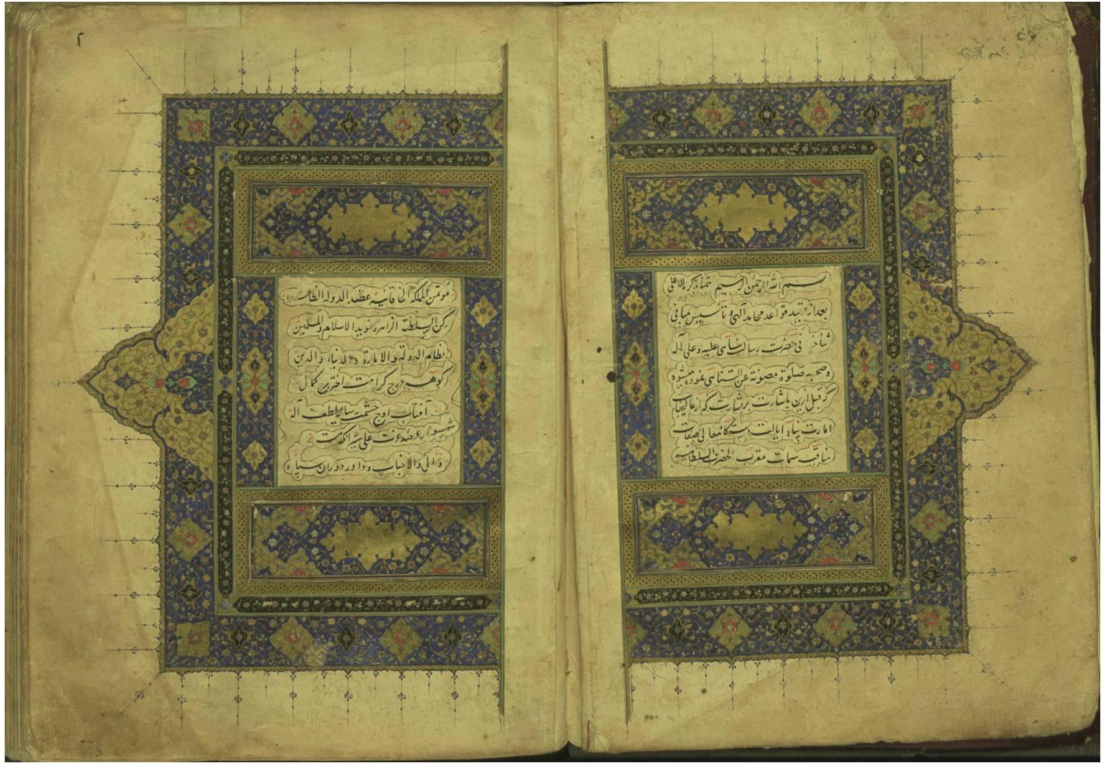 بسم الله الرحمن الرحيم تيمنا بذكر الاعلى
بعد از تمهيد قواعد محامد الهى و تاسيس مبانى
ثناى حضرت رسالت پناهى عليه وعلى آله
وصحبه صلوة مصونة عن التناهى نموده ميشود
كه قبل ازين باشارت بشارت كه از عاليجناب
امارت پناه ايالت دستكاه معالى صفات
مناقب سمات مقرب الحضرت السلطانيه
مؤتمن المملكة الخاقانيه عضد الدولة القاهره
ركن السلطنة الزاهره مويد الاسلام والمسلمين
نظام الدولة والامارة والدنيا والدين
گوهر درج كرامت اختر برج كمال
آفتاب اوج حشمت سايه لطف اله
شهسوار عرصه دولت على شير انكه هست
و داور دوران سپاه
٢